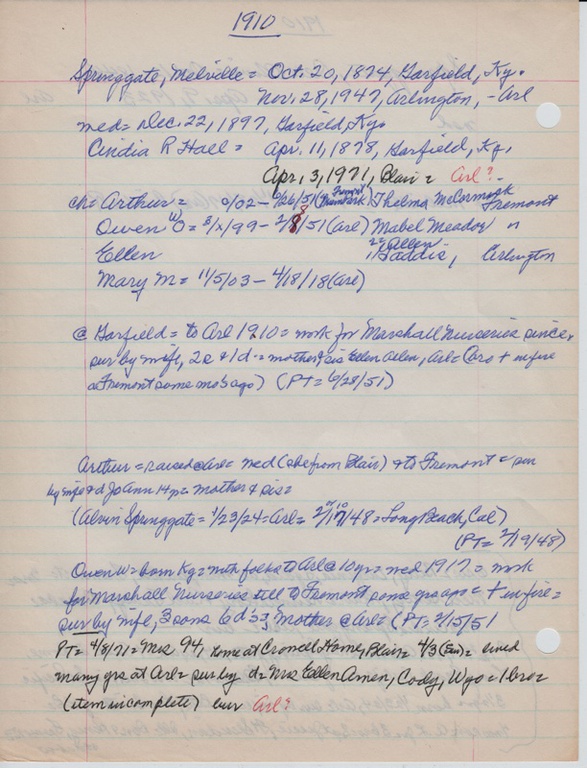 1910
Springgate, Melville = Oct. 20, 1874, Garfield, Ky.
Nov. 28, 1947, Arlington, - Arl
med = Dec. 22, 1897, Garfield, Ky.
Cindia R Hall = Apr. 11, 1878, Garfield, Ky.
Apr. 3, 1971, Blair = Arl? -
ch = Arthur = 9/02 - 6/26/51 (Fremont) Thelma McCormack Fremont
Owen W = 8/x/99 - 2/8/51 (Arl) Mabel Meador "
Ellen Allen Gaddis, Arlington
Mary M = 11/5/03 - 4/18/18 (Arl)
@ Garfield = to Arl 1910 = work for Marshall Nurseries since,
sur by wife, 2s & 1d = mother & sis Ellen Allen, Arl = (bro + in fire
@ Fremont some mos ago) (PT = 6/28/51)
Arthur = raised @ Arl = med (she from Blair) & to Fremont = sur
by wife & d JoAnn 14 yr = mother & sis =
(Alvin Springgate = 1/23/24 = Arl = 2/17/48 = Long Beach, Cal)
(PT = 2/19/48)
Owen W = born Ky = with folks to Arl @ 10 yr = med 1917 = work
for Marshall Nurseries till to Fremont some yrs ago = + in fire =
sur by wife, 3 sons 6 d's, Mother @ Arl = (PT = 2/15/51
PT = 4/8/71 = Mrs 94, home at Crowell Home, Blair = 4/3 (Sun) = lived
many yrs at Arl = sur by d = Mrs Ellen Amen, Cody, Wyo = 1 bro =
(item incomplete) bur Arl?